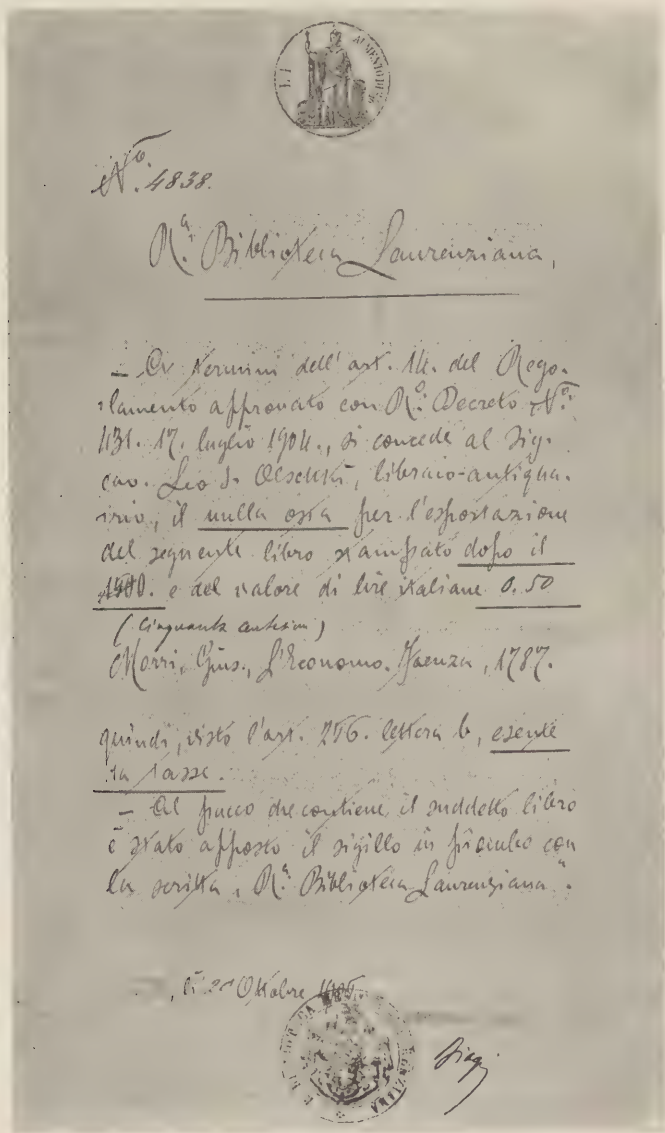 Nº. 4838.
Rª. Biblioteca Laurenziana,
— Ai termini dell'art. 14. del Rego-
lamento approvato con Rº. Decreto Nº.
431. 17. luglio 1904., si concede al Sig.
cav. Leo S. Olschki, libraio-antiqua-
rio, il nulla osta per l'esportazione
del seguente libro stampato dopo il
e del valore di lire italiane 0.50
(cinquanta centesimi)
Morri, Gius., L'Economo. Faenza, 1787.
quindi, visto l'art. lettera b, esente
da tasse.
— Al pacco che contiene il suddetto libro
è stato apposto il sigillo in piombo con
la scritta „Rª. Biblioteca Laurenziana".
, li Ottobre
Biagi